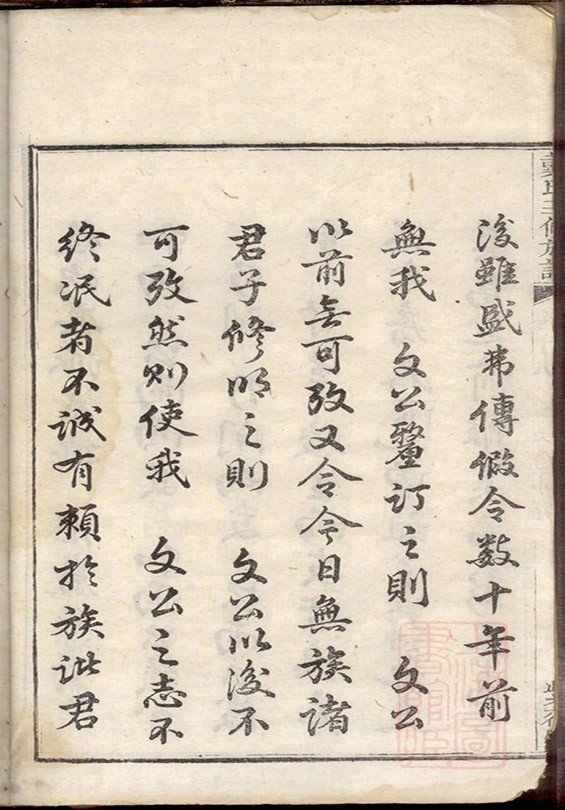 後雖盛弗傳假令數十年前
無我 文公釐訂之則 文公
以前無可攷又令今日無族諸
君子修明之則 文公以後不
可攷然則使我 文公之志不
終泯者不誠有賴於族諸君